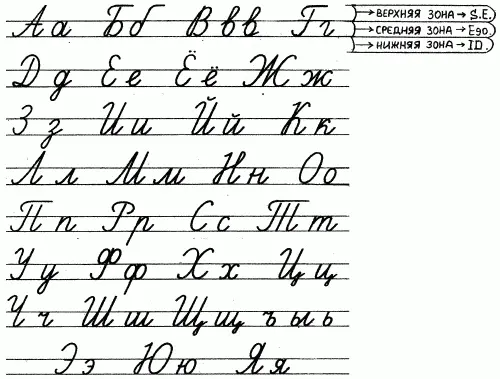 Аа Бб Ввв Гг
ВЕРХНЯЯ ЗОНА → S.E.
СРЕДНЯЯ ЗОНА → Ego.
НИЖНЯЯ ЗОНА → ID.
Дд Ее Ёё Жж
Зз Ии Йй Кк
Лл Мм Нн Оо
Пп Рр Сс Тт
Уу Фф Хх Цц
Чч Шш Щщ ъ ы ь
Ээ Юю Яя